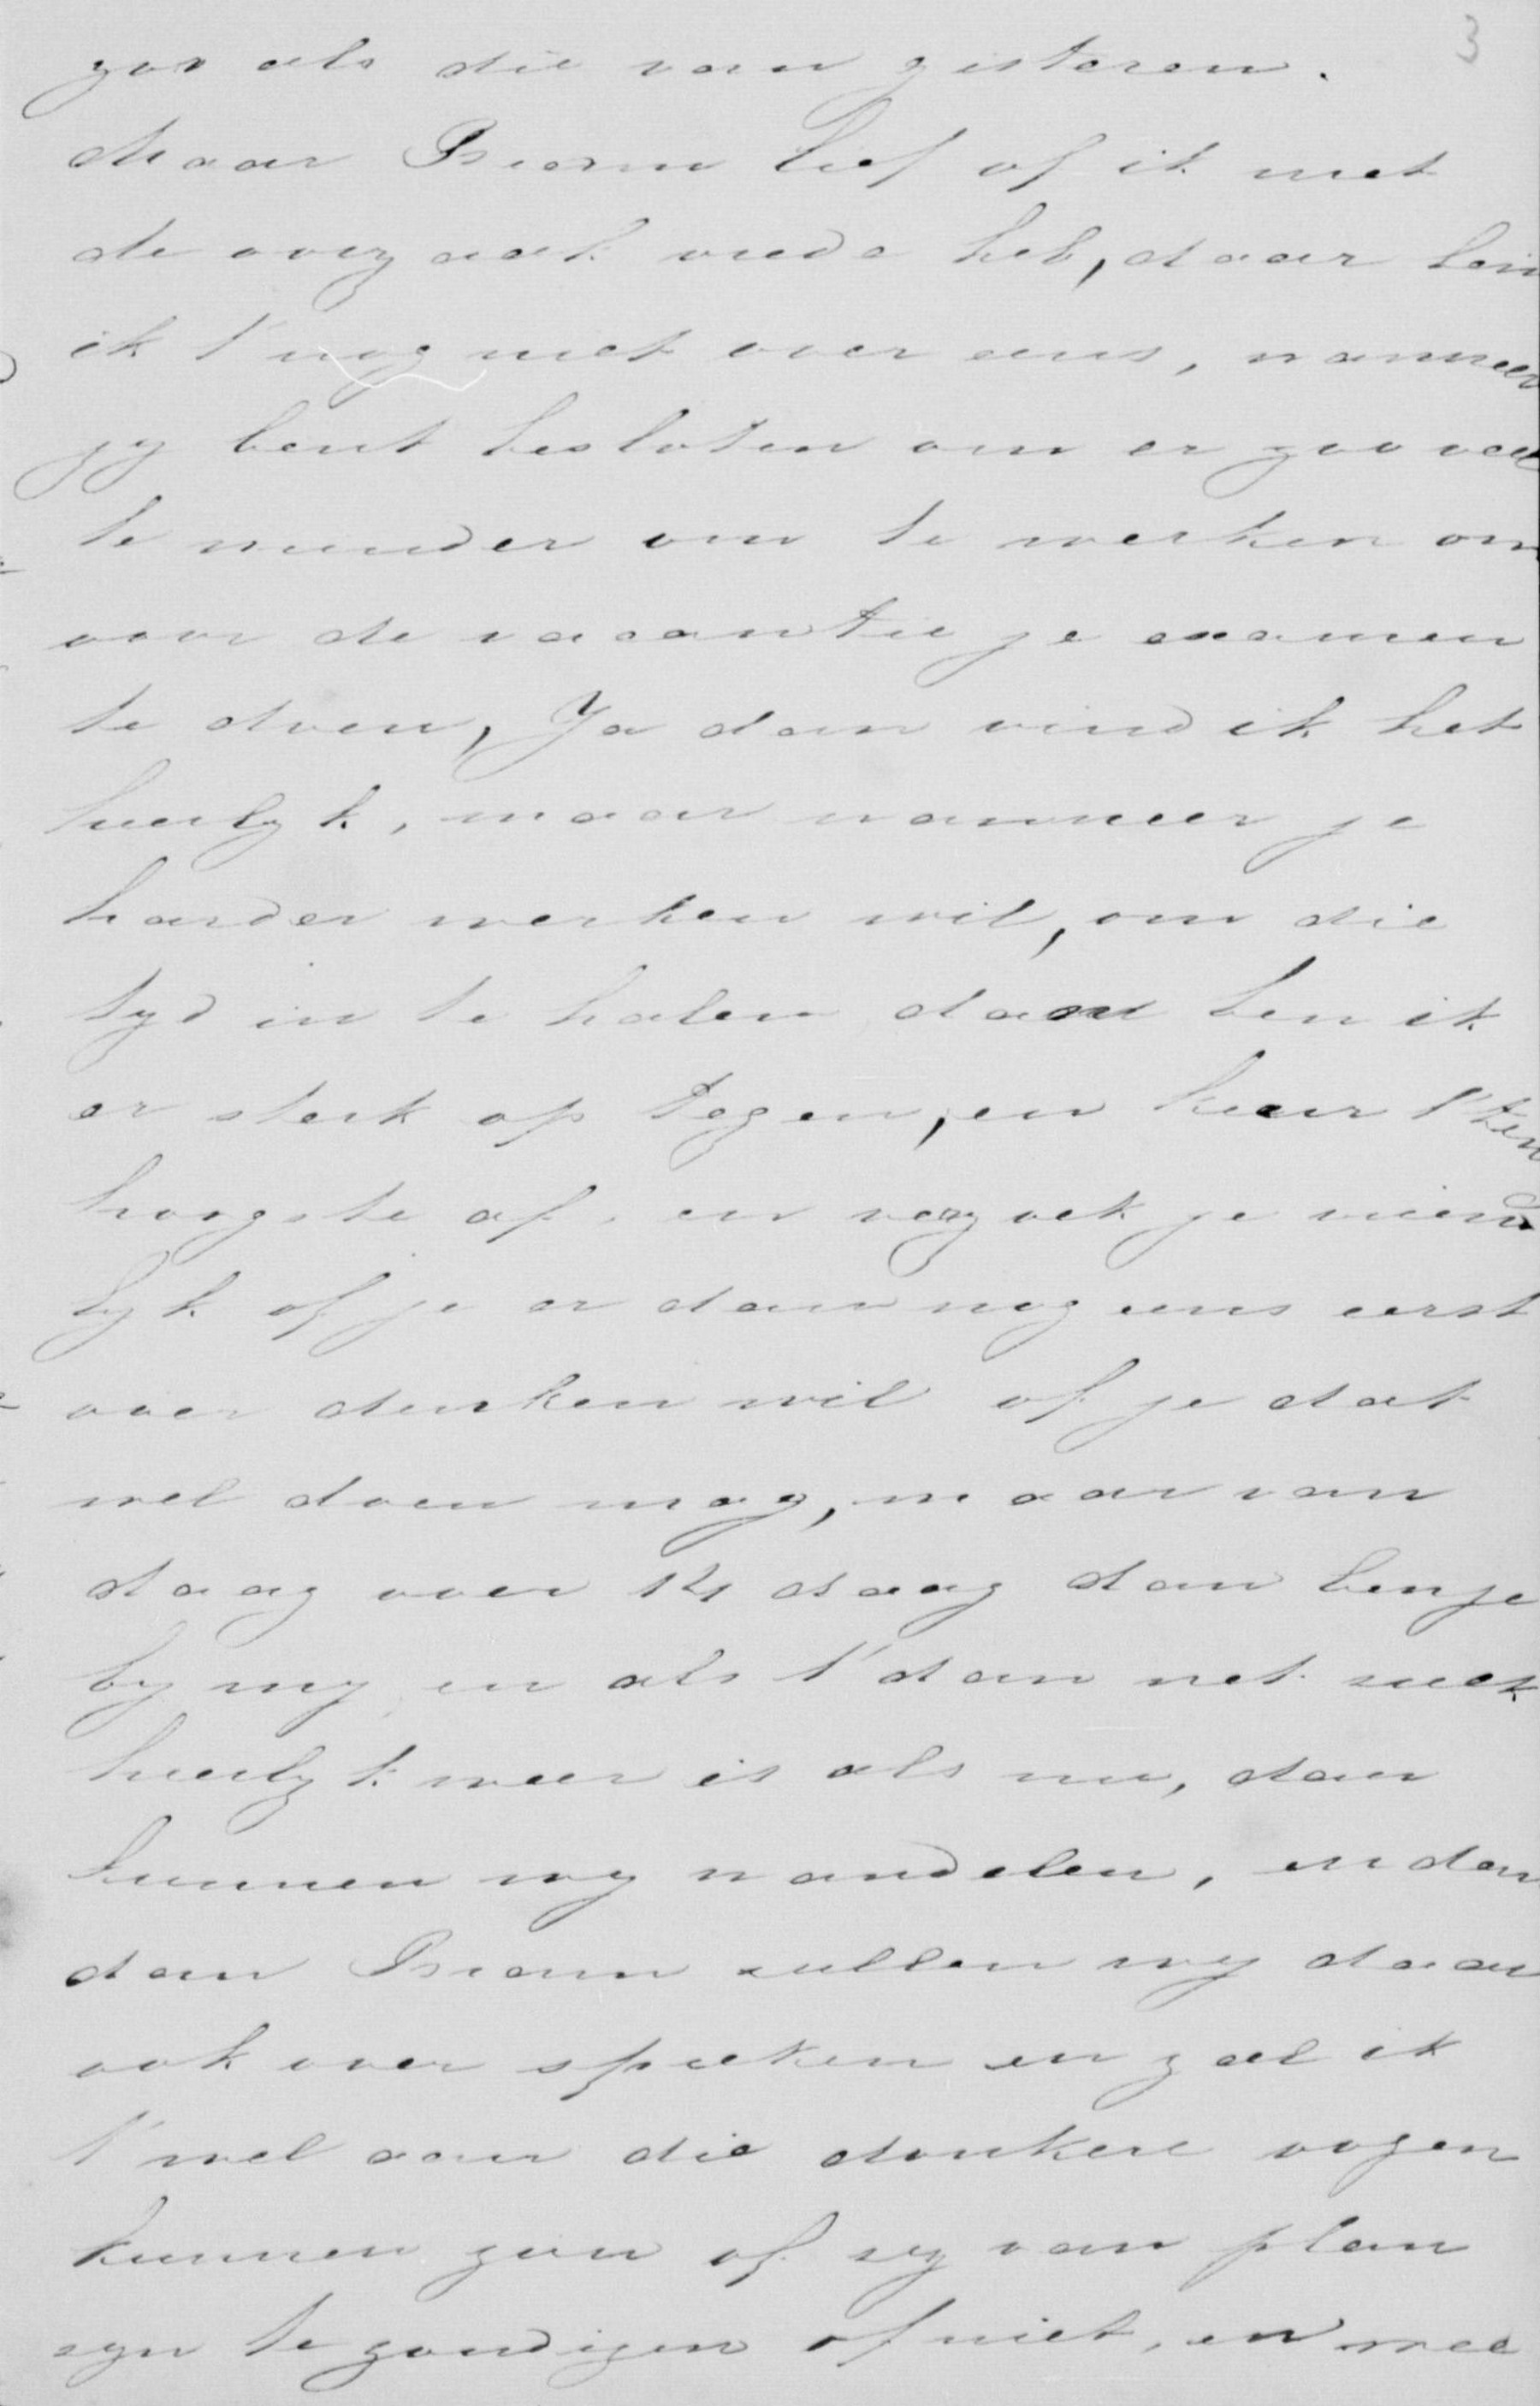 3
zoo als die van gisteren.
Maar Bram lief of ik met
de oorzaak vrede heb, daar ben
ik t' nog niet over eens, wanneer
jy bent besloten om er zoo veel
te minder om te werken om
voor de vacantie je examen
te doen, Ja dan vind ik het
heerlyk, maar wanneer je
harder werken wil, om die
tyd in te halen dan ben ik
er sterk op tegen, en keur t' ten
hoogste af, en verzoek je vriend
lyk of je er dan nog eens eerst
over denken wil of je dat
wel doen mag, maar van
daag over 14 daag dan ben je
by my en als t' dan net zulk
heerlyk weer is als nu, dan
kunnen wy wandelen, en dan
dan Bram zullen wy daar
ook over spreken en zal ik
t' wel aan die donkere oogen
kunnen zien of zy van plan
zyn te zondigen of niet, en wee